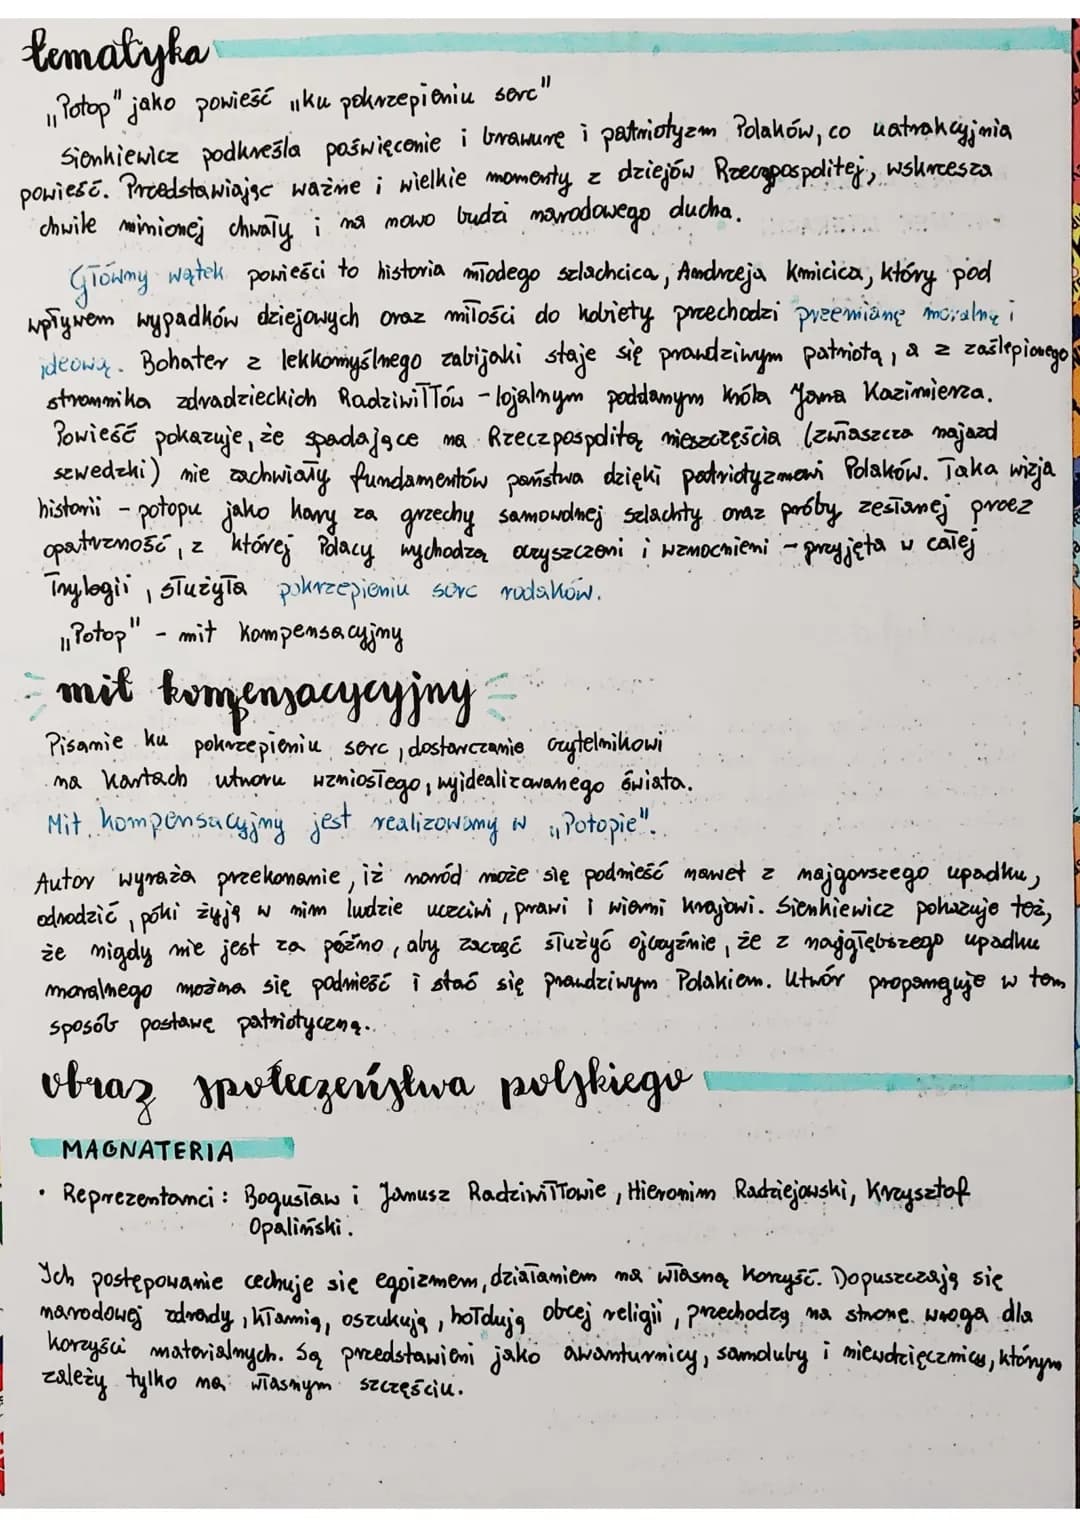 tematyka
„Potop" jako powieść „ku pokrzepieniu serc"
Sienkiewicz podkreśla poświęcenie i brawurę i patriotyzm Polaków, co uatrakcyjnia
powieść. Przedstawiając ważne i wielkie momenty z dziejów Rzeczpospolitej, wskrzesza
chwile minionej chwały i na nowo budzi narodowego ducha.
Główny wątek powieści to historia młodego szlachcica, Andrzeja Kmicica, który pod
wpływem wypadków dziejowych oraz miłości do kobiety przechodzi przemianę moralną i
ideową. Bohater z lekkomyślnego zabijaki staje się prawdziwym patriotą, a z zaślepionego
stronnika zdradzieckich Radziwiłłów - lojalnym poddanym króla Jana Kazimierza.
Powieść pokazuje, że spadające na Rzeczpospolitą nieszczęścia (zwłaszcza najazd
szwedzki) nie zachwiały fundamentów państwa dzięki patriotyzmowi Polaków. Taka wizja
historii - potopu jako kary za grzechy samowolnej szlachty oraz próby zesłanej przez
opatrzność, z której Polacy wychodzą oczyszczeni i wzmocnieni - przyjęta w całej
Trylogii, służyła pokrzepieniu serc rodaków.
„Potop" - mit kompensacyjny
mit kompensacycyjny
Pisanie ku pokrzepieniu serc, dostarczanie czytelnikowi
na kartach utworu wzniosłego, wyidealizowanego świata.
Mit kompensacyjny jest realizowany w „Potopie".
Autor wyraża przekonanie, iż naród może się podnieść nawet z najgorszego upadku,
odrodzić, póki żyją w nim ludzie uczciwi, prawi i wierni krajowi. Sienkiewicz pokazuje też,
że nigdy nie jest za późno, aby zacząć służyć ojczyźnie, że z najgłębszego upadku
moralnego można się podnieść i stać się prawdziwym Polakiem. Utwór propanguje w ten
sposób postawę patriotyczną.
obraz społeczeństwa polskiego
MAGNATERIA
• Reprezentanci: Bogusław i Janusz Radziwiłłowie, Hieronim Radziejowski, Krzysztof
Opaliński.
Ich postępowanie cechuje się egoizmem, działaniem na własną korzyść. Dopuszczają się
narodowej zdrady, kłamią, oszukują, hołdują obcej religii, przechodzą na stronę wroga dla
korzyści materialnych. Są przedstawieni jako awanturnicy, samoluby i niewdzięcznicy, którym
zależy tylko na własnym szczęściu.